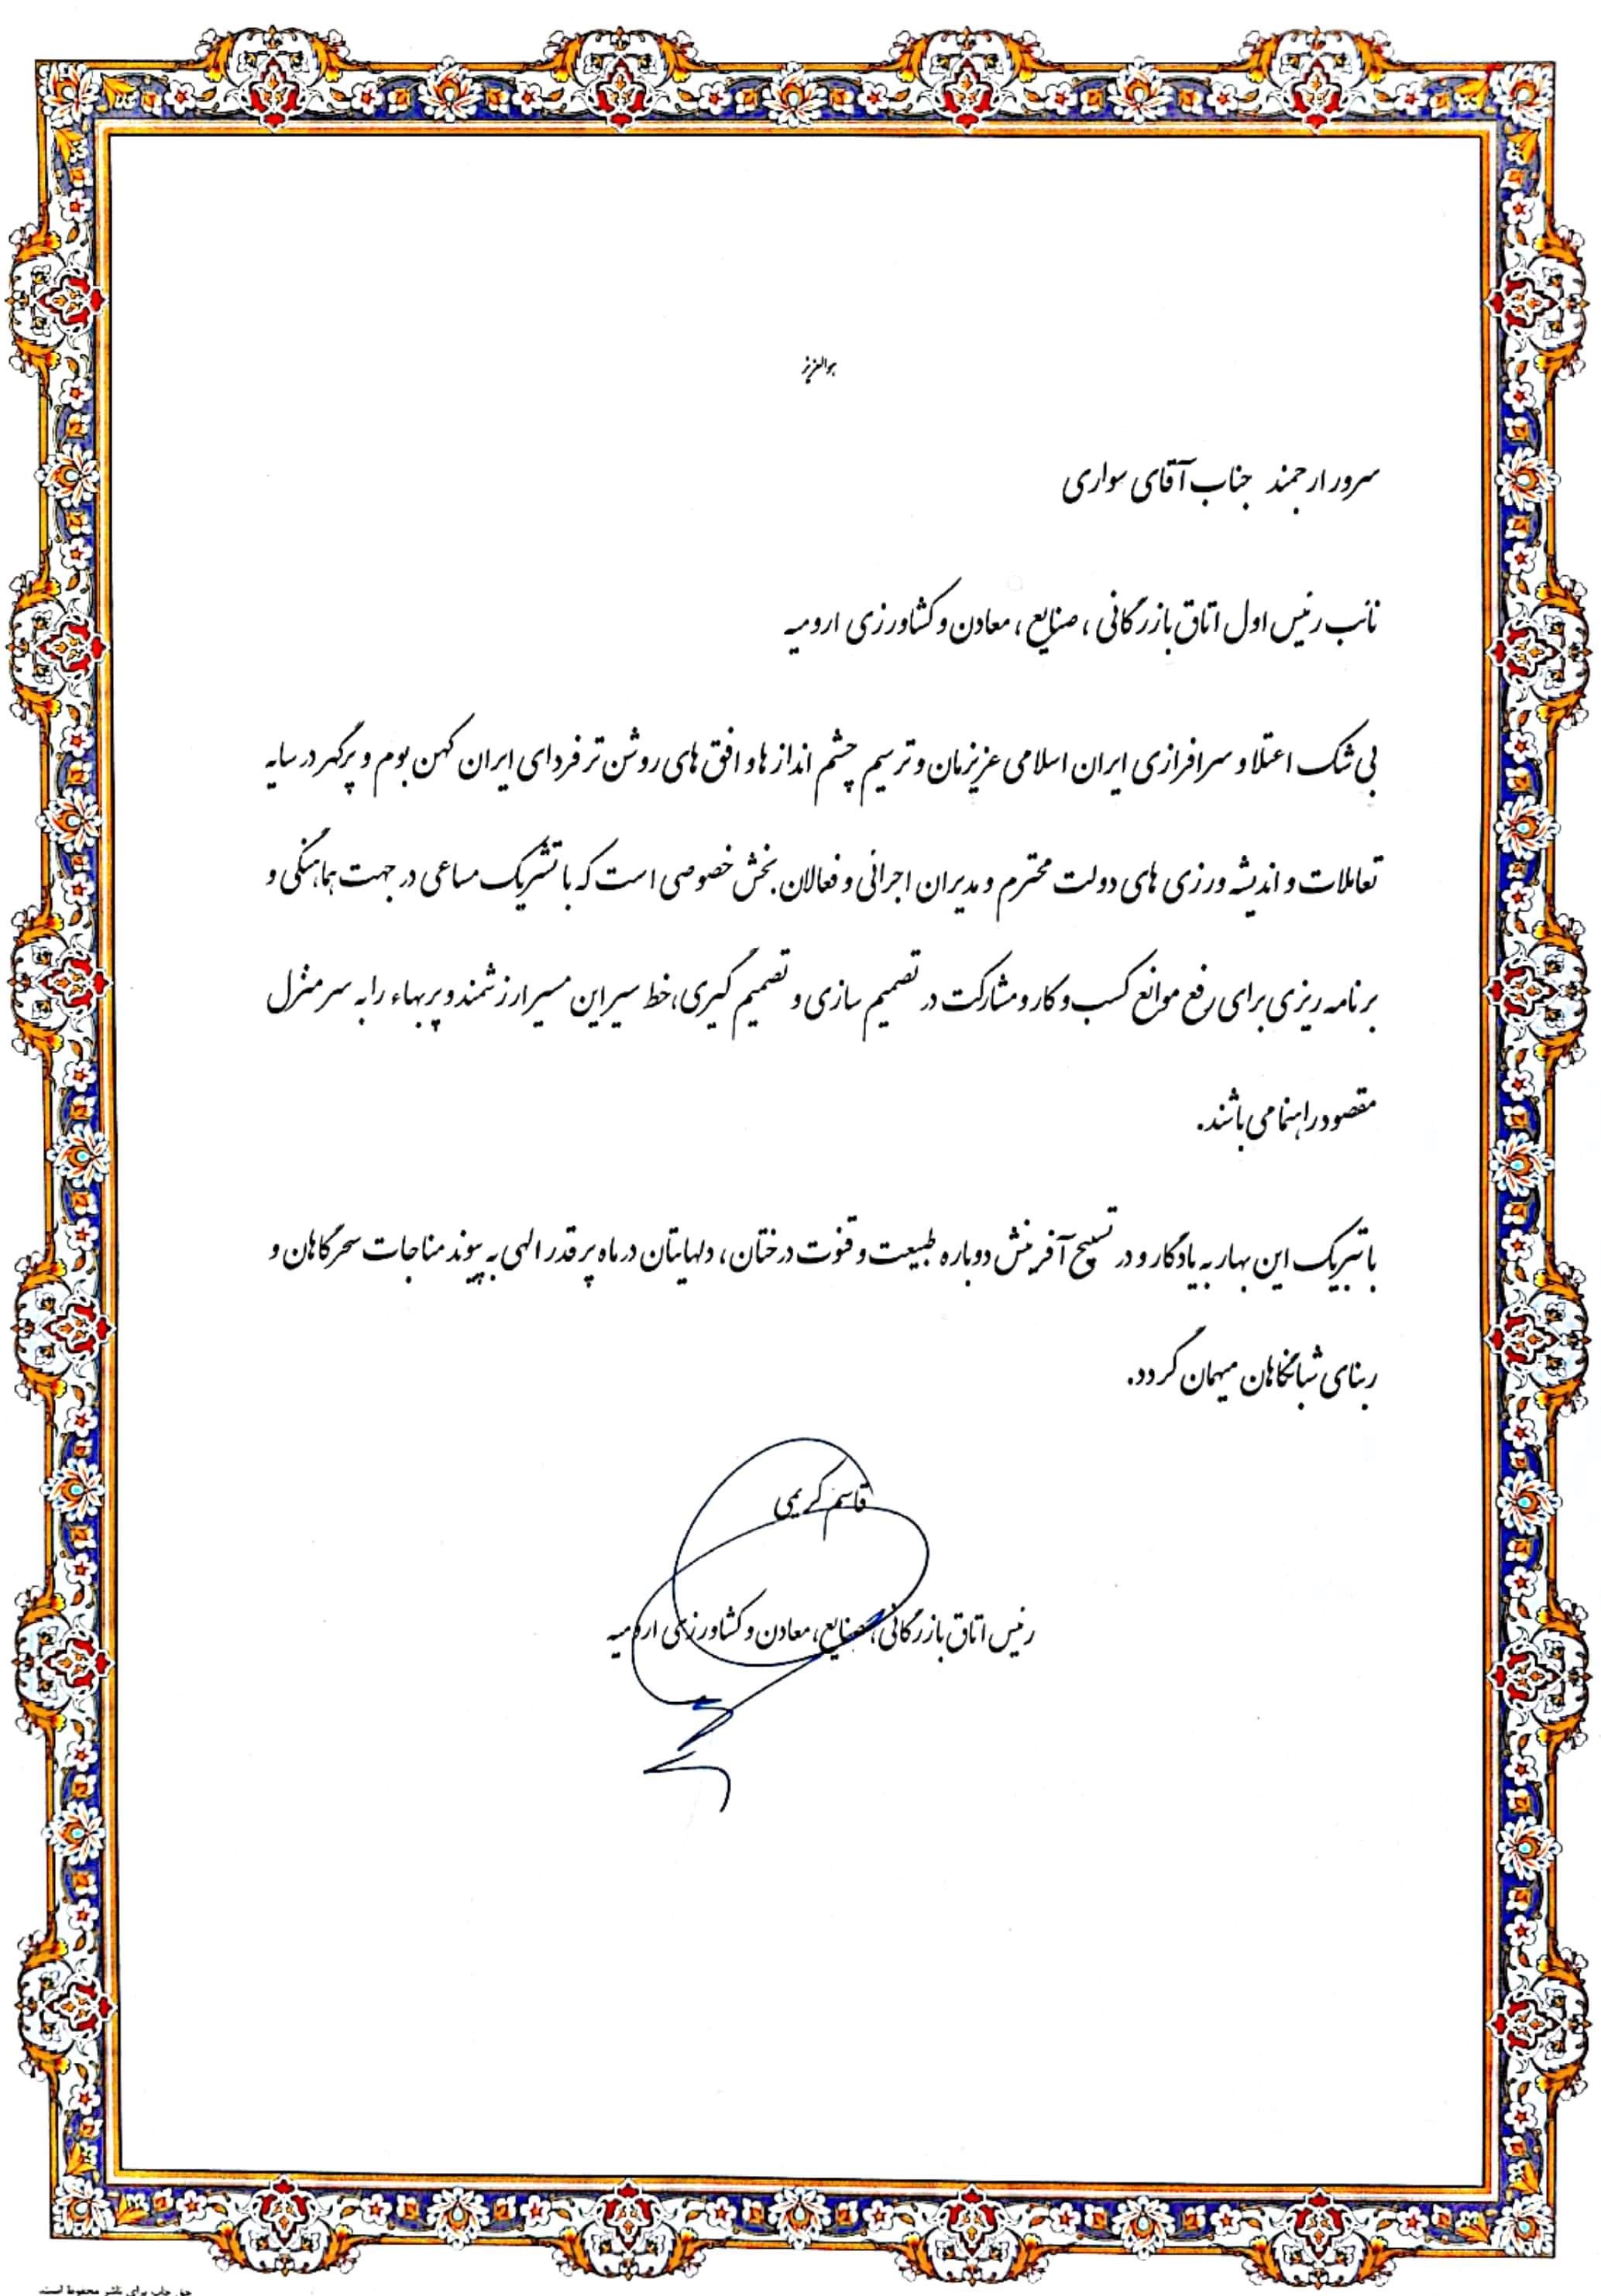 هوالعزیز
سرور ارجمند جناب آقای سواری
نائب رئیس اول اتاق بازرگانی ، صنایع ، معادن و کشاورزی ارومیه
بی شک اعتلا و سرافرازی ایران اسلامی عزیزمان و ترسیم چشم اندازها و افق های روشن تر فردای ایران کهن بوم و پرگهر در سایه
تعاملات و اندیشه ورزی های دولت محترم و مدیران اجرائی و فعالان بخش خصوصی است که با تشریک مساعی در جهت هماهنگی و
برنامه ریزی برای رفع موانع کسب و کار و مشارکت در تصمیم سازی و تصمیم گیری، خط سیر این مسیر ارزشمند و پربهاء را به سر منزل
مقصود راهنما می باشند.
با تبریک این بهار به یادگار و در تسبیح آفرینش دوباره طبیعت و قنوت درختان ، دلهایتان در ماه پر قدر الهی به پیوند مناجات سحرگاهان و
ربنای شبانگاهان میهمان گردد.
قاسم کریمی
رئیس اتاق بازرگانی، صنایع، معادن و کشاورزی ارومیه
حق چاپ برای ناشر محفوظ است.